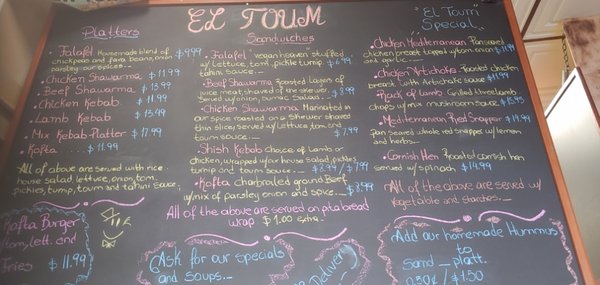 EL TOUM
Platters
• Falafel Homemade blend of
chickpeas and fava beans, onion
parsley, our spices. $9.99
• Chicken Shawarma $11.99
• Beef Shawarma $13.99
• Chicken Kebab $11.99
• Lamb Kebab $13.99
• Mix Kebab Platter $17.99
• Kofta $11.99
All of above are served with rice
house salad, lettuce, onion, tom.
pickles, turnip, toum and tahini sauce
Kofta Burger
tom, lett. and
Fries $11.99
Sandwiches
• Falafel vegan heaven stuffed
w/ lettuce, tom, pickle, turnip
tahini sauce $6.99
• Beef Shawarma Roasted layers of
juice meat, shaved off the skewer
Served w/ onion, sumac sauce $8.99
• Chicken Shawarma Marinated in
our spice roasted on a skewer shaved
thin slices, served w/ lettuce, tom and
toum sauce $7.99
• Shish Kebab choice of Lamb or
chicken, wrapped w/ our house salad, pickles,
turnip and toum sauce $8.99 / $7.99
• Kofta charbroiled ground Beef
w/ mix of parsley onion and spice $8.99
All of the above are served on pita bread
wrap $1.00 extra.
Ask for our specials
and soups.
Delivery
"EL Toum
Special"
• Chicken Mediterranean Pan seared
chicken breast topped w/ tom, onion
and garlic $11.99
• Chicken Artichoke Roasted chicken
breast with Artichoke sauce $11.99
• Rack of Lamb Grilled three lamb
chops w/ mix mushroom sauce $15.95
• Mediterranean Red Snapper $14.99
Pan seared whole red snapper w/ lemon
and herbs.
• Cornish Hen Roasted cornish hen
served w/ spinach $14.99
All of the above are served w/
Vegetable and starches.
Add our homemade Hummus
to
Sand platt.
$1.50